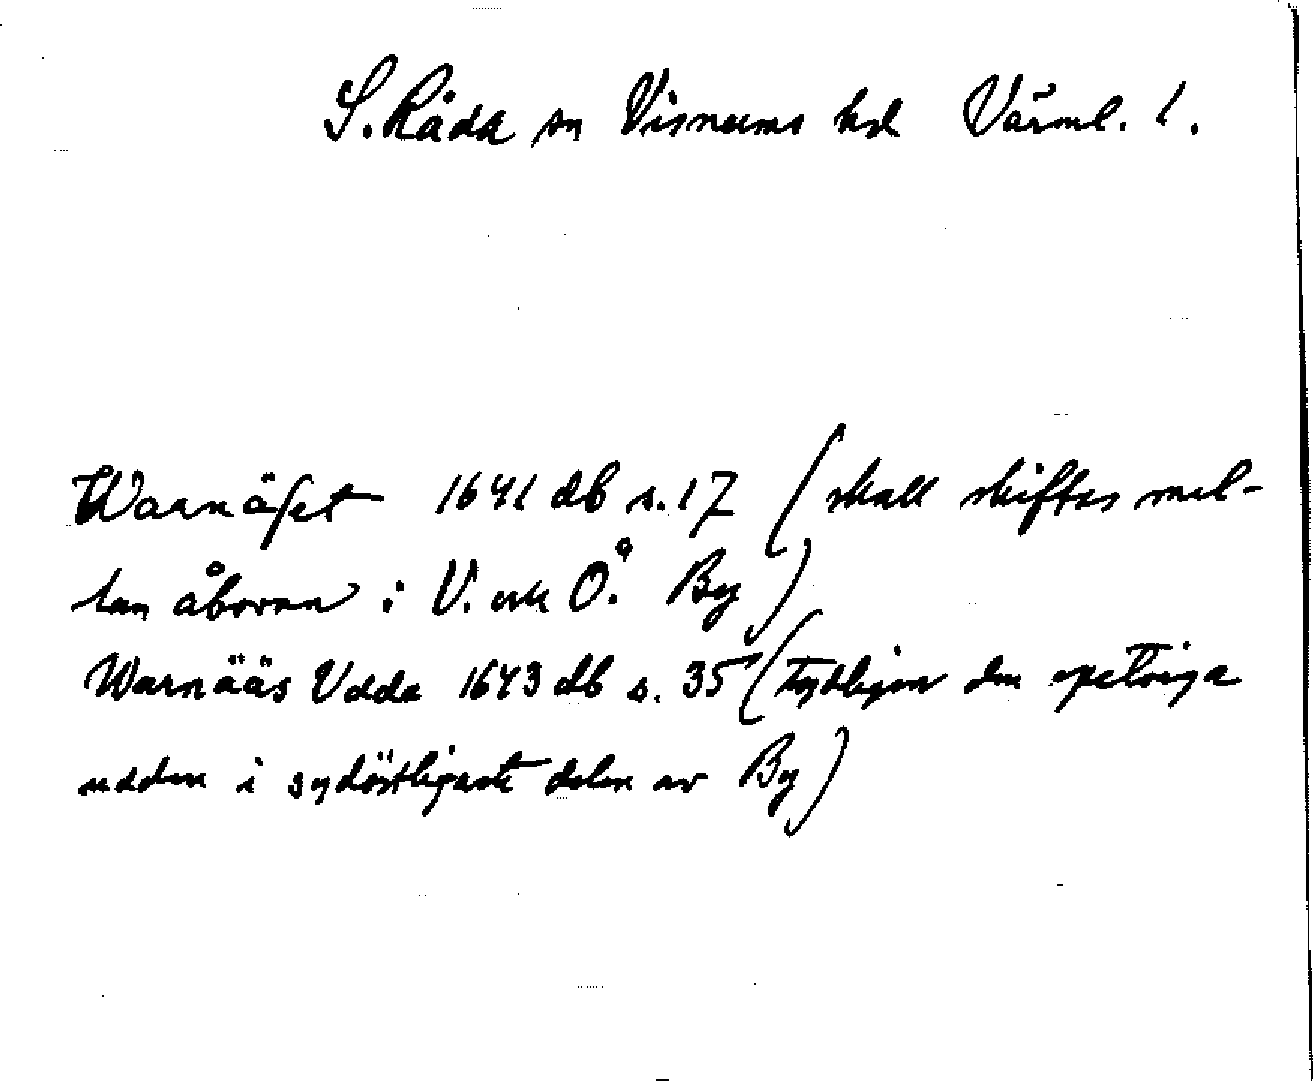 S. Råda sn Visnums hd Värml. l.
Warnäset 1641 db s. 17 (skall skiftas mel-
lan åboran i V. och Ö. By)
Warnääs Udda 1643 db s. 35 (tydligen den spetsiga
udden i sydöstligaste delen av By)